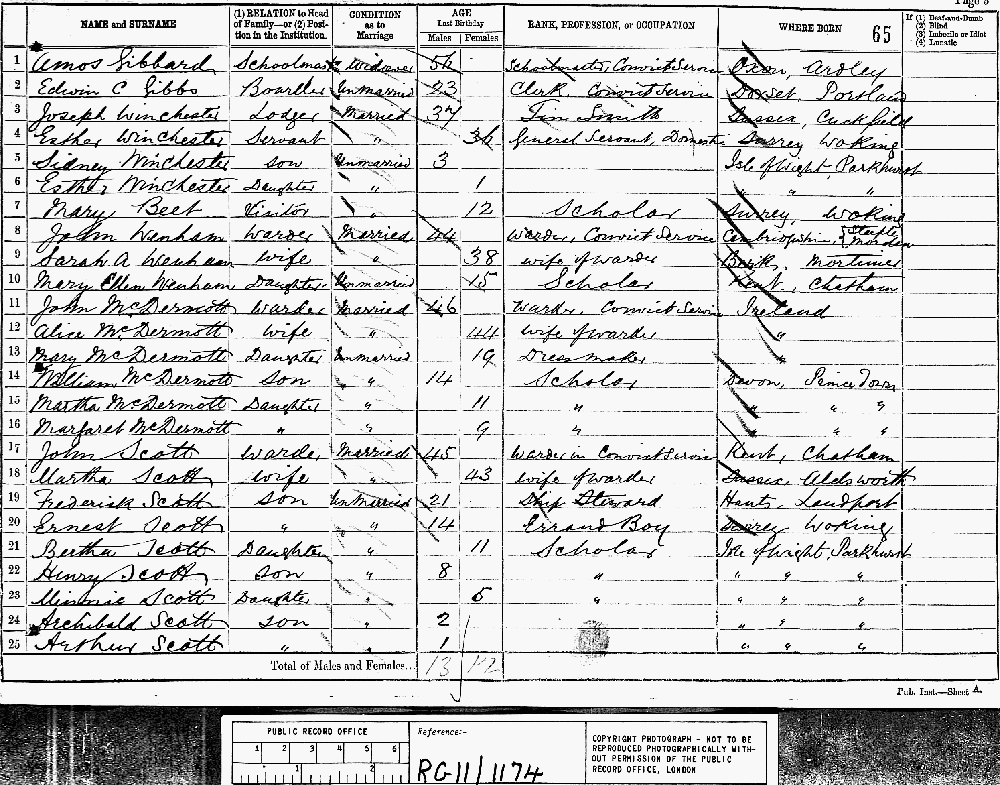 Page 5
NAME and SURNAME (1) RELATION to Head of Family—or (2) Position in the Institution. CONDITION as to Marriage AGE Last Birthday Males Females RANK, PROFESSION, or OCCUPATION WHERE BORN 65 If (1) Deaf-and-Dumb (2) Blind (3) Imbecile or Idiot (4) Lunatic
1 Amos Gibbard Schoolmaster Widower 56 Schoolmaster, Convict Service Oxon, Ardley
2 Edwin C Gibbs Boarder Unmarried 23 Clerk, Convict Service Dorset, Portland
3 Joseph Winchester Lodger Married 37 Tin Smith Sussex, Cuckfield
4 Esther Winchester Servant " 36 General Servant, Domestic Surrey Woking
5 Sidney Winchester Son Unmarried 3 Isle of Wight, Parkhurst
6 Esther Winchester Daughter " 1 " " "
7 Mary Beet Visitor " 12 Scholar Surrey, Woking
8 John Wenham Warder Married 44 Warder, Convict Service Cambridgeshire, Steeple Morden
9 Sarah A Wenham Wife " 38 Wife of warder Berks, Mortimer
10 Mary Ellen Wenham Daughter Unmarried 15 Scholar Kent, Chatham
11 John McDermott Warder Married 46 Warder, Convict Service Ireland
12 Alice McDermott Wife " 44 Wife of warder "
13 Mary McDermott Daughter Unmarried 19 Dressmaker "
14 William McDermott Son " 14 Scholar Devon, Prince Town
15 Martha McDermott Daughter " 11 " " " "
16 Margaret McDermott " " 9 " " " "
17 John Scott Warder Married 45 Warder in Convict Service Kent, Chatham
18 Martha Scott Wife " 43 Wife of warder Sussex Aldsworth
19 Frederick Scott Son Unmarried 21 Ship Steward Hants, Landport
20 Ernest Scott " " 14 Errand Boy Surrey Woking
21 Bertha Scott Daughter " 11 Scholar Isle of Wight, Parkhurst
22 Henry Scott Son " 8 " " " "
23 Minnie Scott Daughter " 5 " " " "
24 Archibald Scott Son " 2 " " "
25 Arthur Scott " 1 " " "
Total of Males and Females... 13 12
Pub. Inst.—Sheet A.
PUBLIC RECORD OFFICE Reference:- COPYRIGHT PHOTOGRAPH - NOT TO BE
1 2 3 4 5 6 REPRODUCED PHOTOGRAPHICALLY WITH-
1 2 OUT PERMISSION OF THE PUBLIC
RG11/1174 RECORD OFFICE, LONDON